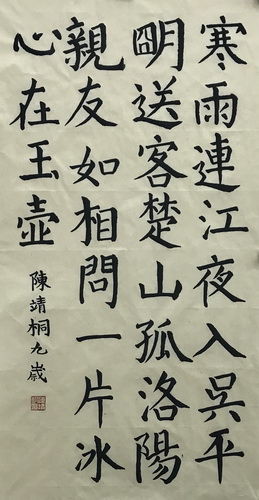 寒雨連江夜入吳平
明送客楚山孤洛陽
親友如相問一片冰
心在玉壺
陳靖桐九歲